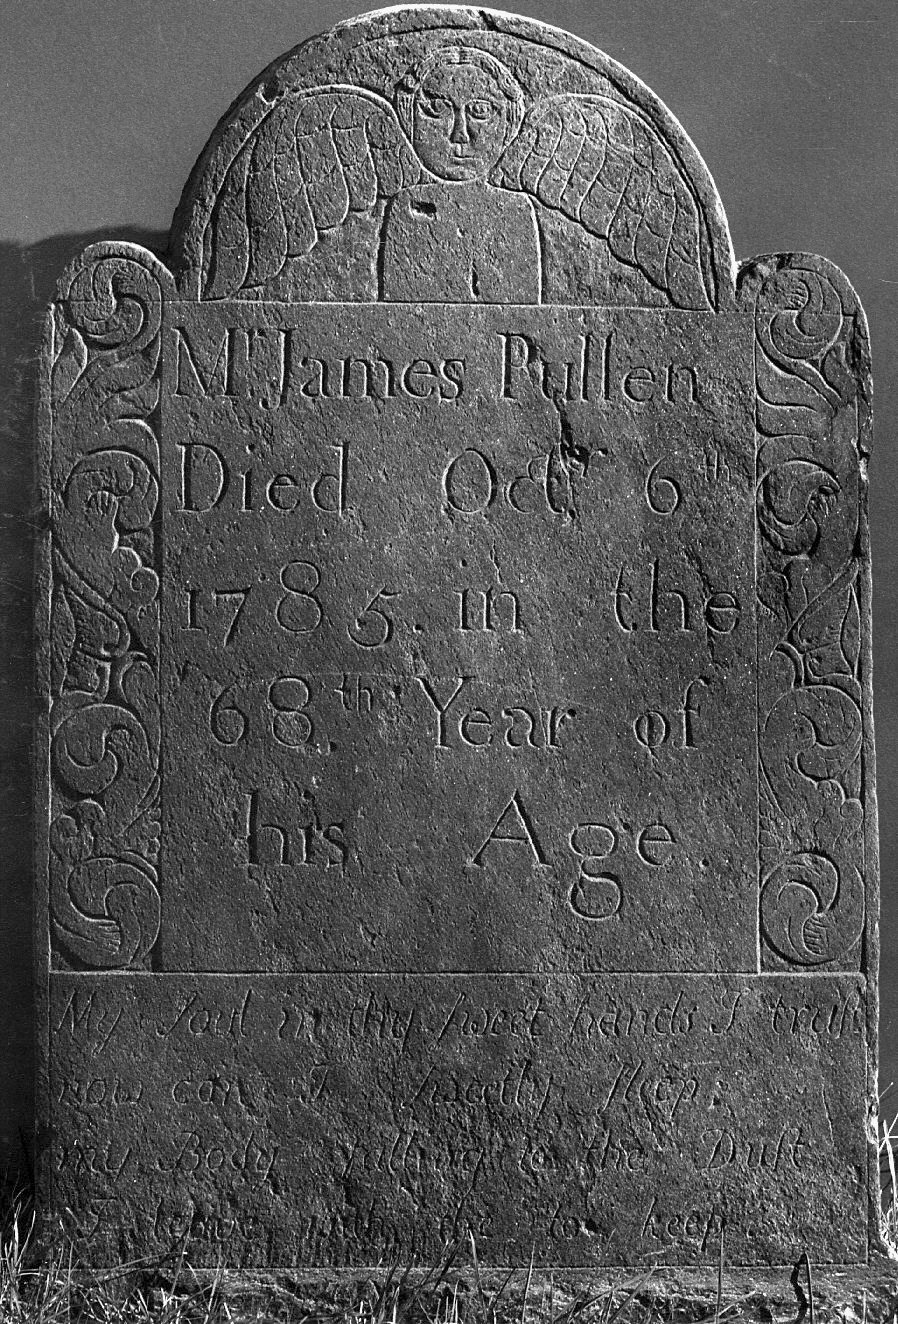 Mr. James Pullen
Died Octr 6th
1785. in the
68th. Year of
his Age.
My ſoul in thy ſweet hands I truſt
now can I ſweetly ſleep.
my Body falling to the Duſt
I leave with the to keep